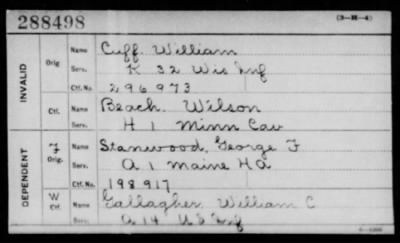 288498
(3-M-4)
INVALID
Orig
Name Cuff. William
Serv. K 32 Wis Inf
Ctf. No. 296973
Ctf. Name Beach. Wilson
Serv. H 1 Minn Cav
DEPENDENT
F
Orig.
Name Stanwood, George F
Serv. A 1 Maine H A
Ctf. No. 198917
W
Ctf. Name Gallagher, William C
Serv. A 14 U S Inf